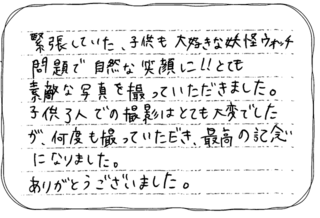 緊張していた、子供も大好きな妖怪ウォッチ
問題で自然な笑顔に!!とても
素敵な写真を撮っていただきました。
子供3人での撮影はとても大変でした
が、何度も撮っていただき、最高の記念
になりました。
ありがとうございました。